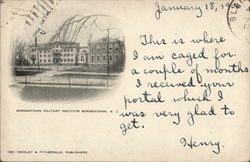 January 18, 190
This is where
I am caged for
a couple of months
I received your
portal which I
was very glad to
get.
Henry.
BORDENTOWN MILITARY INSTITUTE BORDENTOWN, N. J.
& FITZGERALD, PUBLISHERS